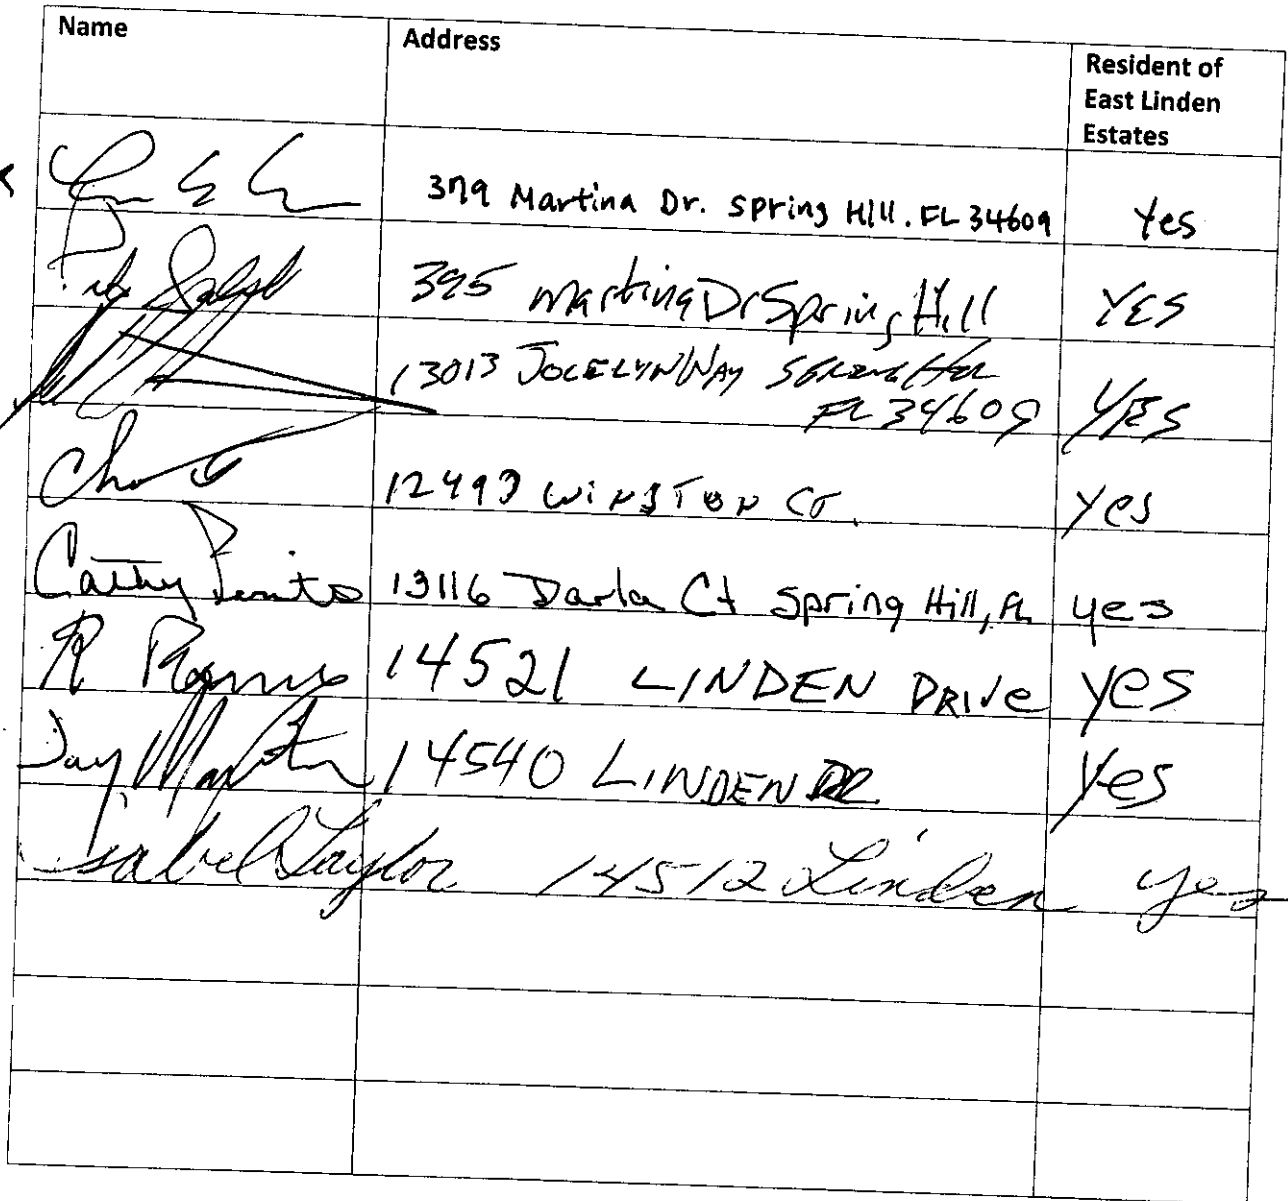 Name Address Resident of
East Linden
Estates
Martina Dr. Spring Hill. FL 34609 Yes
395 Martina Dr Spring Hill YES
13013 JOCELYN WAY SPRING Hill
FL 34609 YES
WINSTON CT. yes
Cathy 13116 Darla Ct Spring Hill, FL yes
R 14521 LINDEN DRIVe yes
Jay 14540 LINDEN DR. yes
Isabel Taylor 14512 Linden yes